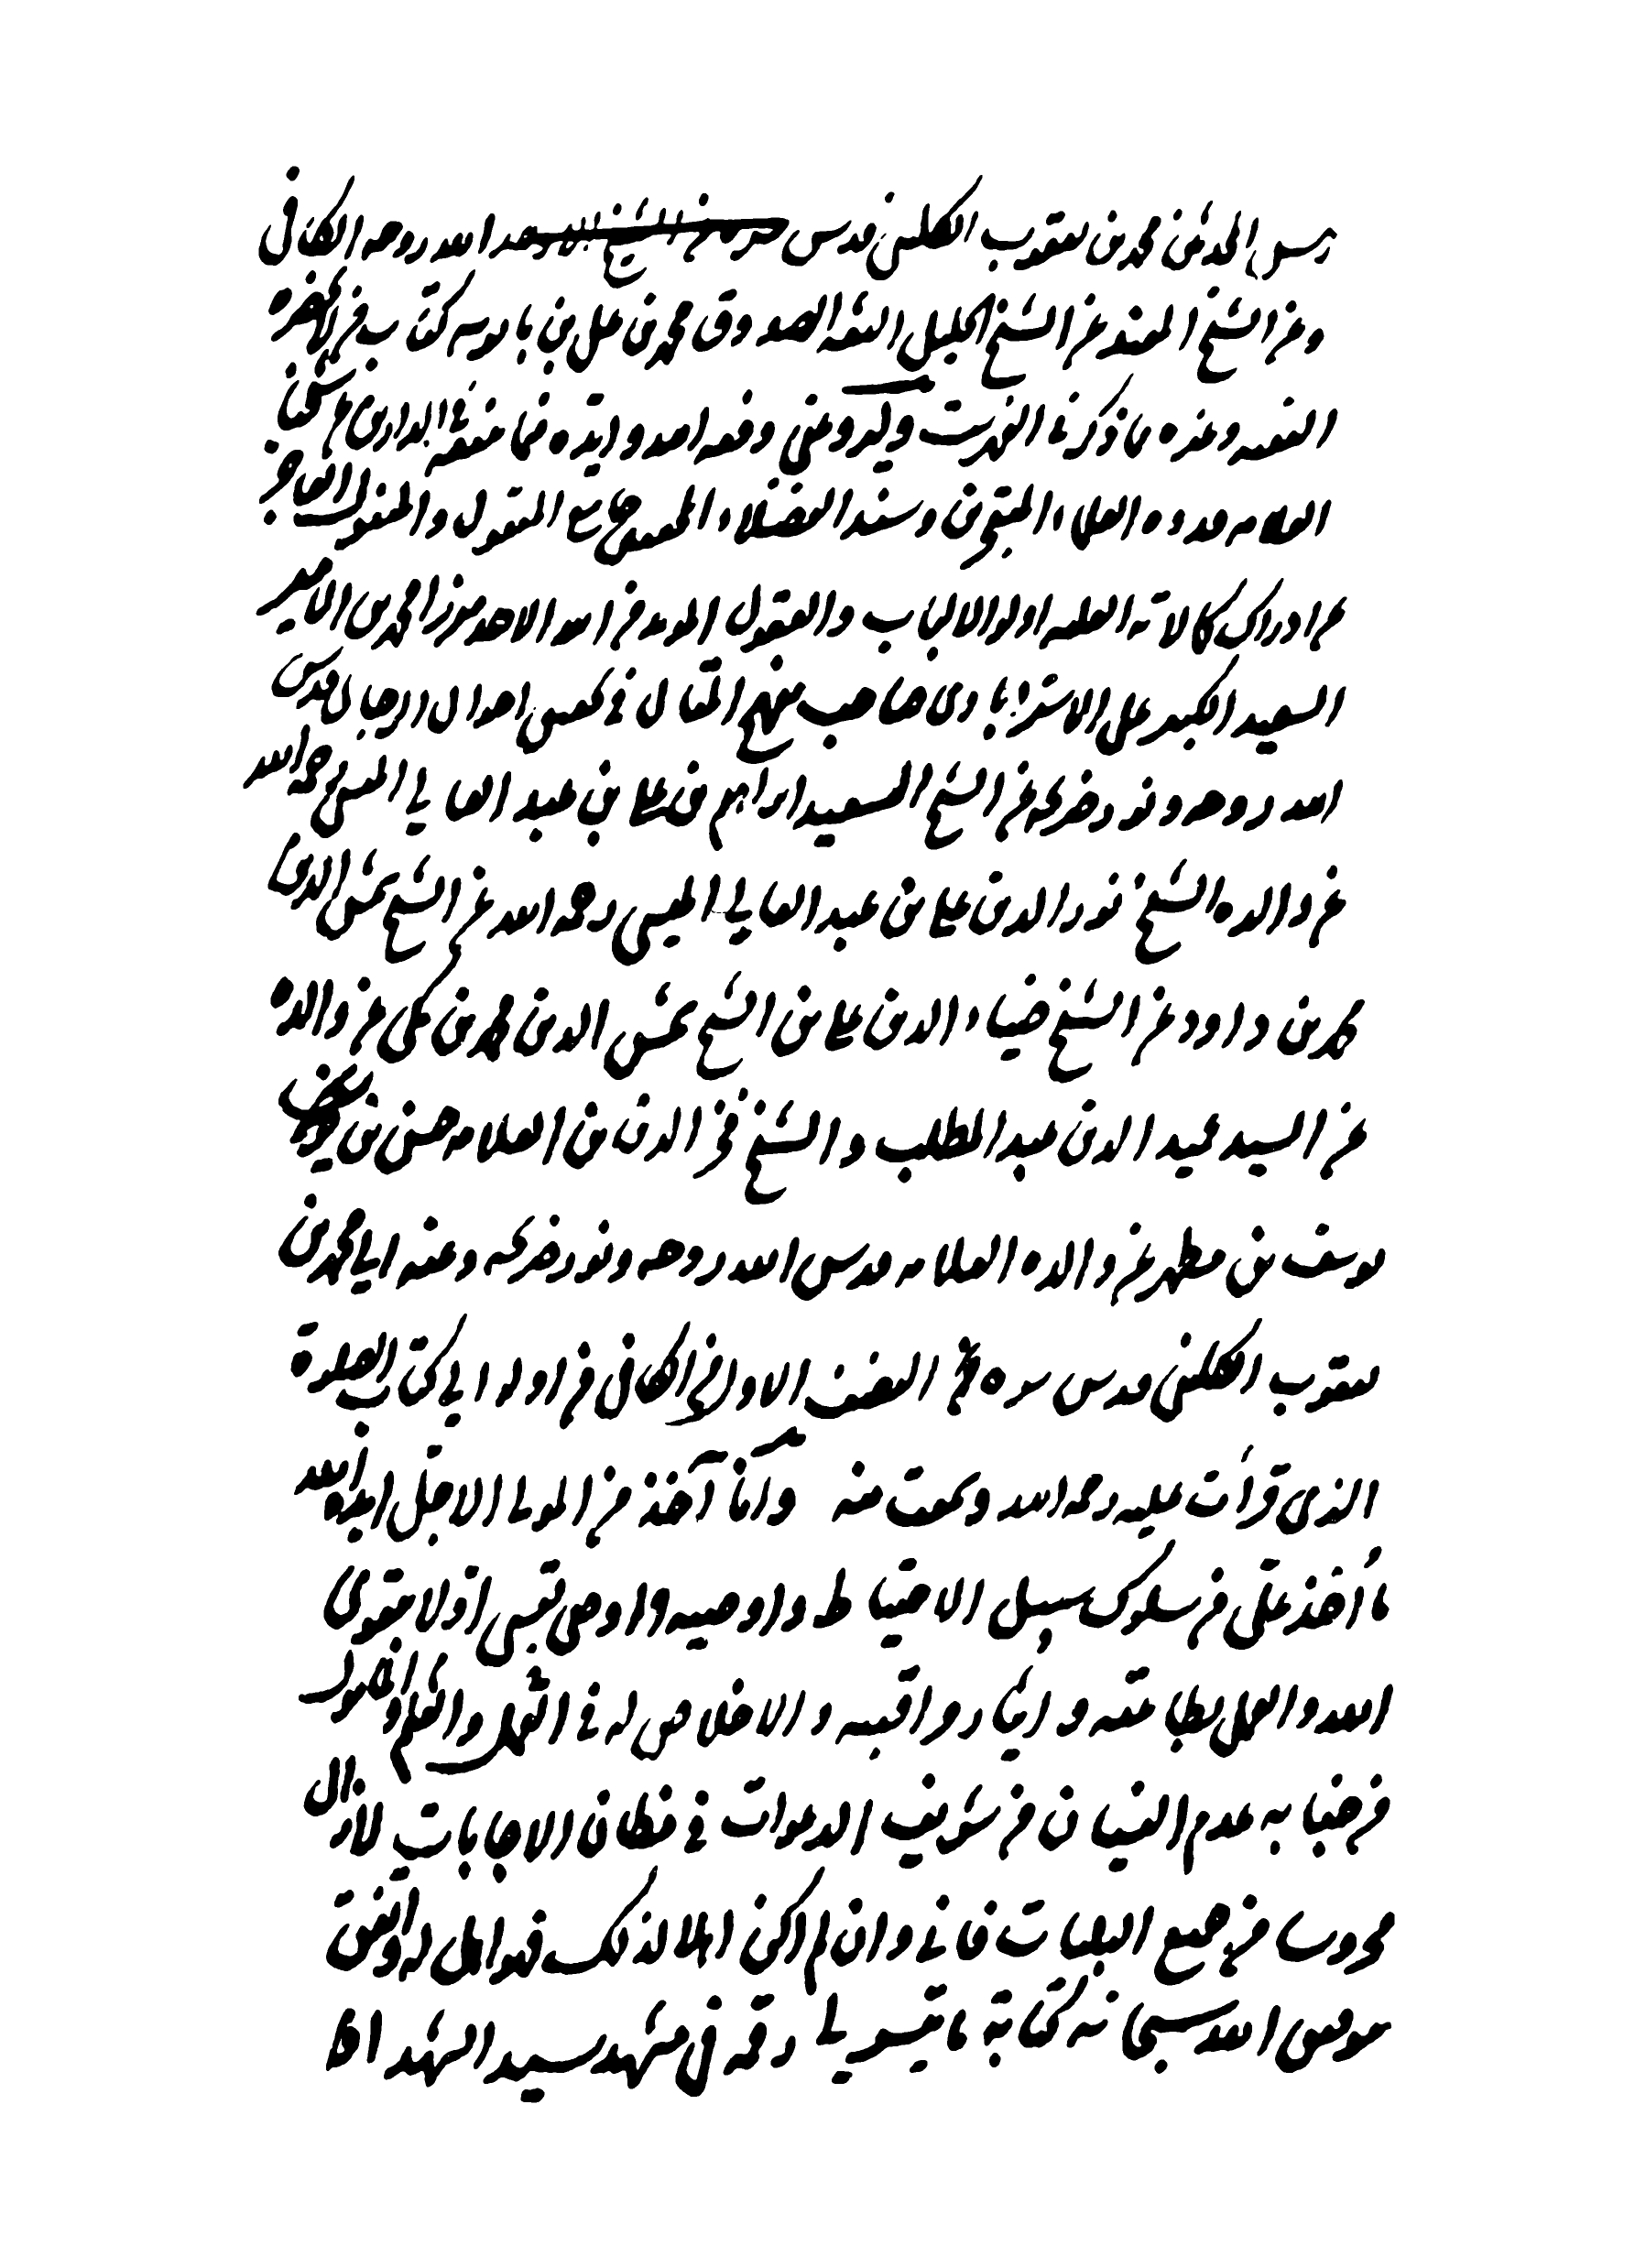 رئيس المحدثين محمد بن يعقوب الكليني قدس الله روحه الكافي
وعن الشيخ المفيد عن الشيخ الجليل الثقة الصدوق محمد بن علي بن بابويه كتاب من لا يحضره
الفقيه وغيره مما ذكر في الفهرست وليرو عني وفقه الله وايده
العلامه قدوه العلماء المتبحرين وسند الفضلاء جامع المعقول والمنقول العاجز
عن ادراك كمالاته العليه اولو الالباب والعقول المويد من الله الاحد ميرزا محمد بن الامير
السعيد الكبير علي الاسترابادي صاحب منهج المقال في تحقيق احوال الرجال قدس
الله روحه ونور ضريحه عن الشيخ السعيد ابراهيم بن علي بن عبد العالي الميسي رحمه الله
عن والده الشيخ نور الدين علي بن عبد العالي الميسي رحمه الله عن الشيخ شمس الدين
محمد بن داود عن الشيخ ضياء الدين علي بن الشيخ شمس الدين محمد بن مكي عن والده
عن السيد عميد الدين عبد المطلب والشيخ فخر الدين بن العلامه حسن بن
يوسف بن مطهر عن والده العلامه قدس الله روحه ونور ضريحه وعنه الى محمد بن
يعقوب الكليني قدس سره النصف الاول من الكافي من اوله الى كتاب الصلوة
الذي قرأت عليه رحمه الله وسمعت منه وانا آخذ من المولى الاجل ايده الله
ما أخذ علي من سلوك سبيل الاحتياط واوصيه واوصي نفسي اولا بتقوى
الله والعمل بطاعته وايثار مراقبه والاخلاص له في العمل والعلم
من جنابه عدم النسيان من شريف الدعوات في مظان الاجابات لازال
محروسا من جميع البليات فاني وان لم اكن اهلا لذلك فهو اهل له واتفق
بتوفيق الله سبحانه كتابة ما تيسر لي رقمه في مشهد سيد الشهدا